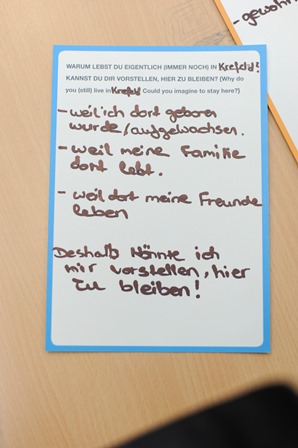 WARUM LEBST DU EIGENTLICH (IMMER NOCH) IN Krefeld?
KANNST DU DIR VORSTELLEN, HIER ZU BLEIBEN? (Why do
you (still) live in Krefeld? Could you imagine to stay here?)
- weil ich dort geboren
wurde/aufgewachsen.
- weil meine Familie
dort lebt.
- weil dort meine Freunde
leben
Deshalb könnte ich
mir vorstellen, hier
zu bleiben!